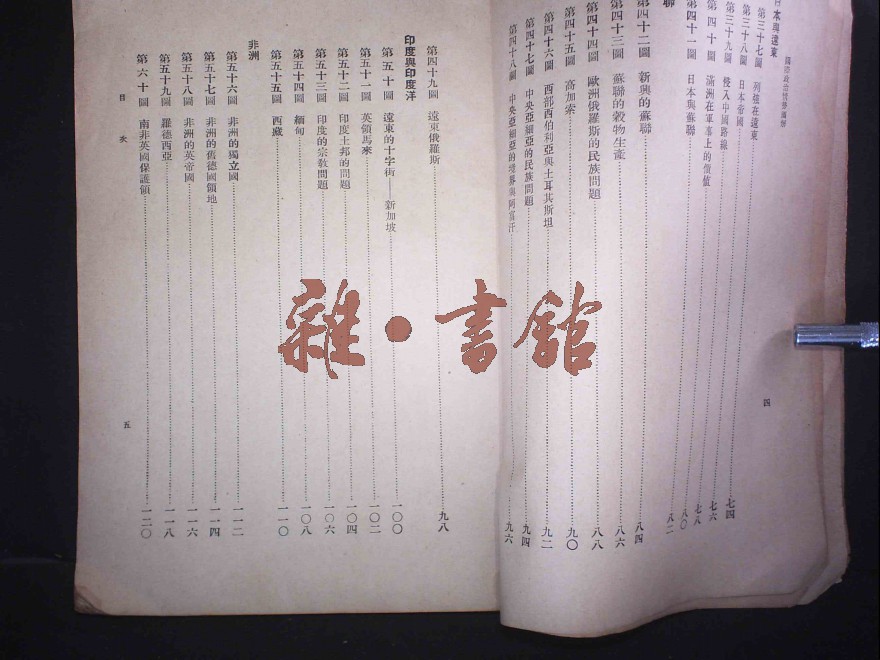 國際政治
日本與遠東
第三十七圖 列强在遠東……七四
第三十八圖 日本帝國……七六
第三十九圖 侵入中國路線……七八
第四十圖 滿洲在軍事上的價值……八〇
第四十一圖 日本與蘇聯……八二
聯
第四十二圖 新興的蘇聯……八四
第四十三圖 蘇聯的穀物生產……八六
第四十四圖 歐洲俄羅斯的民族問題……八八
第四十五圖 高加索……九〇
第四十六圖 西部西伯利亞與土耳其斯坦……九二
第四十七圖 中央亞細亞的民族問題……九四
第四十八圖 中央亞細亞的境界與阿富汗……九六
四
第四十九圖 遠東俄羅斯……九八
印度與印度洋
第五十圖 遠東的十字街——新加坡……一〇〇
第五十一圖 英領馬來……一〇二
第五十二圖 印度土邦的問題……一〇四
第五十三圖 印度的宗敎問題……一〇六
第五十四圖 緬甸……一〇八
第五十五圖 西藏……一一〇
非洲
第五十六圖 非洲的獨立國……一一二
第五十七圖 非洲的舊德國領地……一一四
第五十八圖 非洲的英帝國……一一六
第五十九圖 羅德西亞……一一八
第六十圖 南非英國保護領……一二〇
目次
五
雜·書館